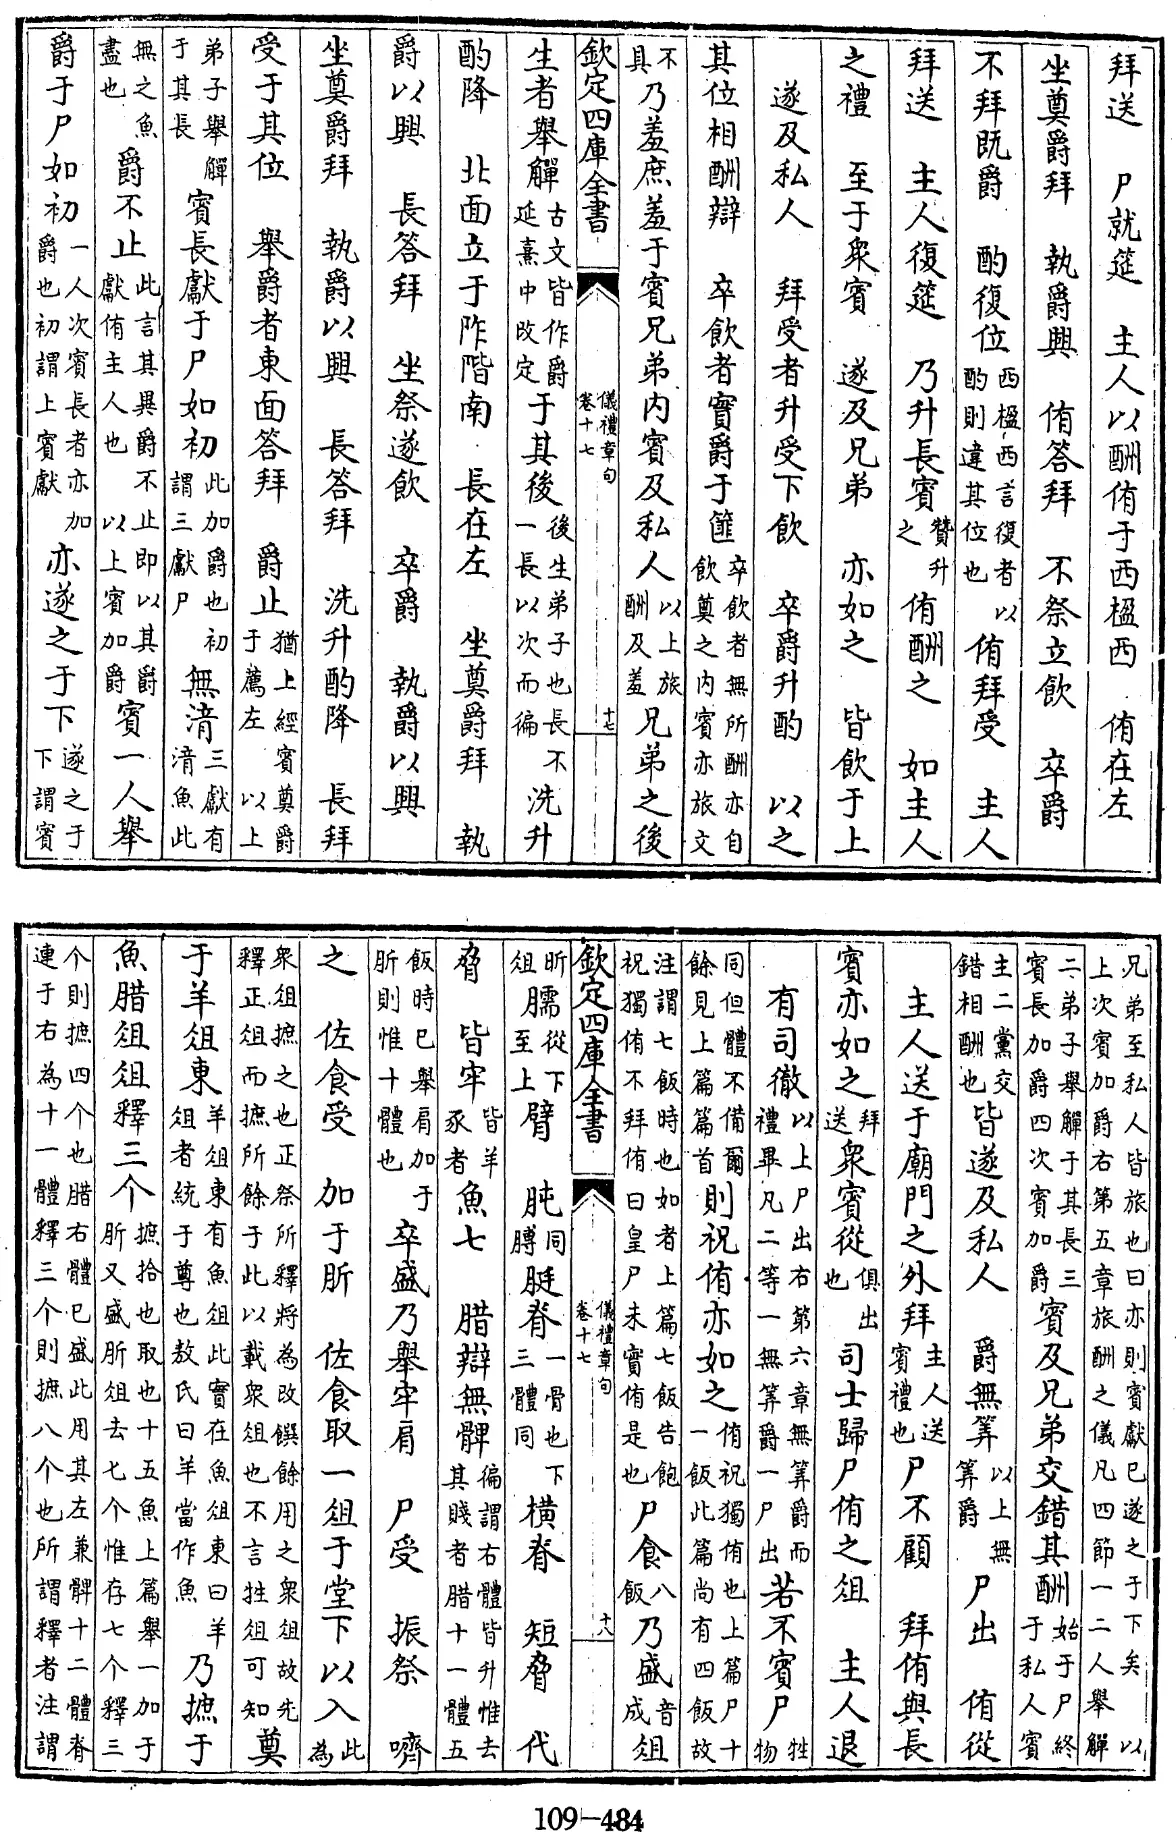 拜送 尸就筵 主人以酬侑于西楹西 侑在左
坐奠爵拜 執爵興 侑答拜 不祭立飲 卒爵
不拜既爵 酌復位 西楹西言復者以酌則違其位也 侑拜受 主人
拜送 主人復筵 乃升長賓 贊升之 侑酬之 如主人
之禮 至于衆賓 遂及兄弟 亦如之 皆飲于上
遂及私人 拜受者升受下飲 卒爵升酌 以之
其位相酬辯 卒飲者實爵于篚 卒飲者無所酬亦自飲奠之内賓亦旅文
不具 乃羞庶羞于賓兄弟内賓及私人 以上旅酬及羞 兄弟之後
欽定四庫全書 儀禮章句 卷十七 十七
生者舉觶 古文皆作爵延熹中改定 于其後 後生弟子也長一長以次而徧 不洗升
酌降 北面立于阼階南 長在左 坐奠爵拜 執
爵以興 長答拜 坐祭遂飲 卒爵 執爵以興
坐奠爵拜 執爵以興 長答拜 洗升酌降 長拜
受于其位 舉爵者東面答拜 爵止 猶上經賓奠爵于薦左 以上
弟子舉觶于其長 賓長獻于尸如初 此加爵也初謂三獻尸 無湆 三獻有湆魚此
無之魚盡也 爵不止 此言其異爵不止即以其爵獻侑主人也 以上賓加爵 賓一人舉
爵于尸如初 一人次賓長者亦加爵也初謂上賓獻 亦遂之于下 遂之于下謂賓
兄弟至私人皆旅也曰亦則賓獻已遂之于下矣 以上次賓加爵右第五章旅酬之儀凡四節一二人舉觶
二弟子舉觶于其長三賓長加爵四次賓加爵 賓及兄弟交錯其酬 始于尸終于私人賓
主二黨交錯相酬也 皆遂及私人 爵無筭 以上無筭爵 尸出 侑從
主人送于廟門之外拜 主人送賓禮也 尸不顧 拜侑與長
賓亦如之 拜送 衆賓從 俱出也 司士歸尸侑之俎 主人退
有司徹 以上尸出右第六章無筭爵而禮畢凡二等一無筭爵一尸出 若不賓尸 牲物
同但體不備爾餘見上篇篇首 則祝侑亦如之 侑祝獨侑也上篇尸十一飯此篇尚有四飯故
注謂七飯時也如者上篇七飯告飽祝獨侑不拜侑曰皇尸未實侑是也 尸食 八飯 乃盛 音成 俎
欽定四庫全書 儀禮章句 卷十七 十八
肵俎 臑 從下至上 臂 肫 同膊 脡脊 一骨也下三體同 横脊 短脅 代
脅 皆牢 皆羊豕者 魚七 腊辯無髀 徧謂右體皆升惟去其賤者腊十一體五
飯時已舉肩加于肵則惟十體也 卒盛乃舉牢肩 尸受 振祭 嚌
之 佐食受 加于肵 佐食取一俎于堂下以入 此為
衆俎摭之也正祭所釋將為改饌餘用之衆俎故先釋正俎而摭所餘于此以載衆俎也不言牲俎可知 奠
于羊俎東 羊俎東有魚俎此實在魚俎東曰羊俎者統于尊也敖氏曰羊當作魚 乃摭于
魚腊俎俎釋三个 摭拾也取也十五魚上篇舉一加于肵又盛肵俎去七个惟存七个釋三
个則摭四个也腊右體已盛此用其左兼髀十二體脊連于右為十一體釋三个則摭八个也所謂釋者注謂
109-484